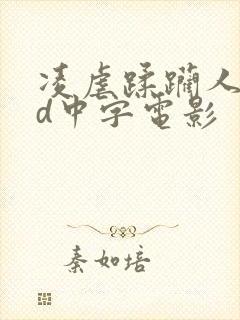 凌虐蹂躏人
d中字电影
秦如培